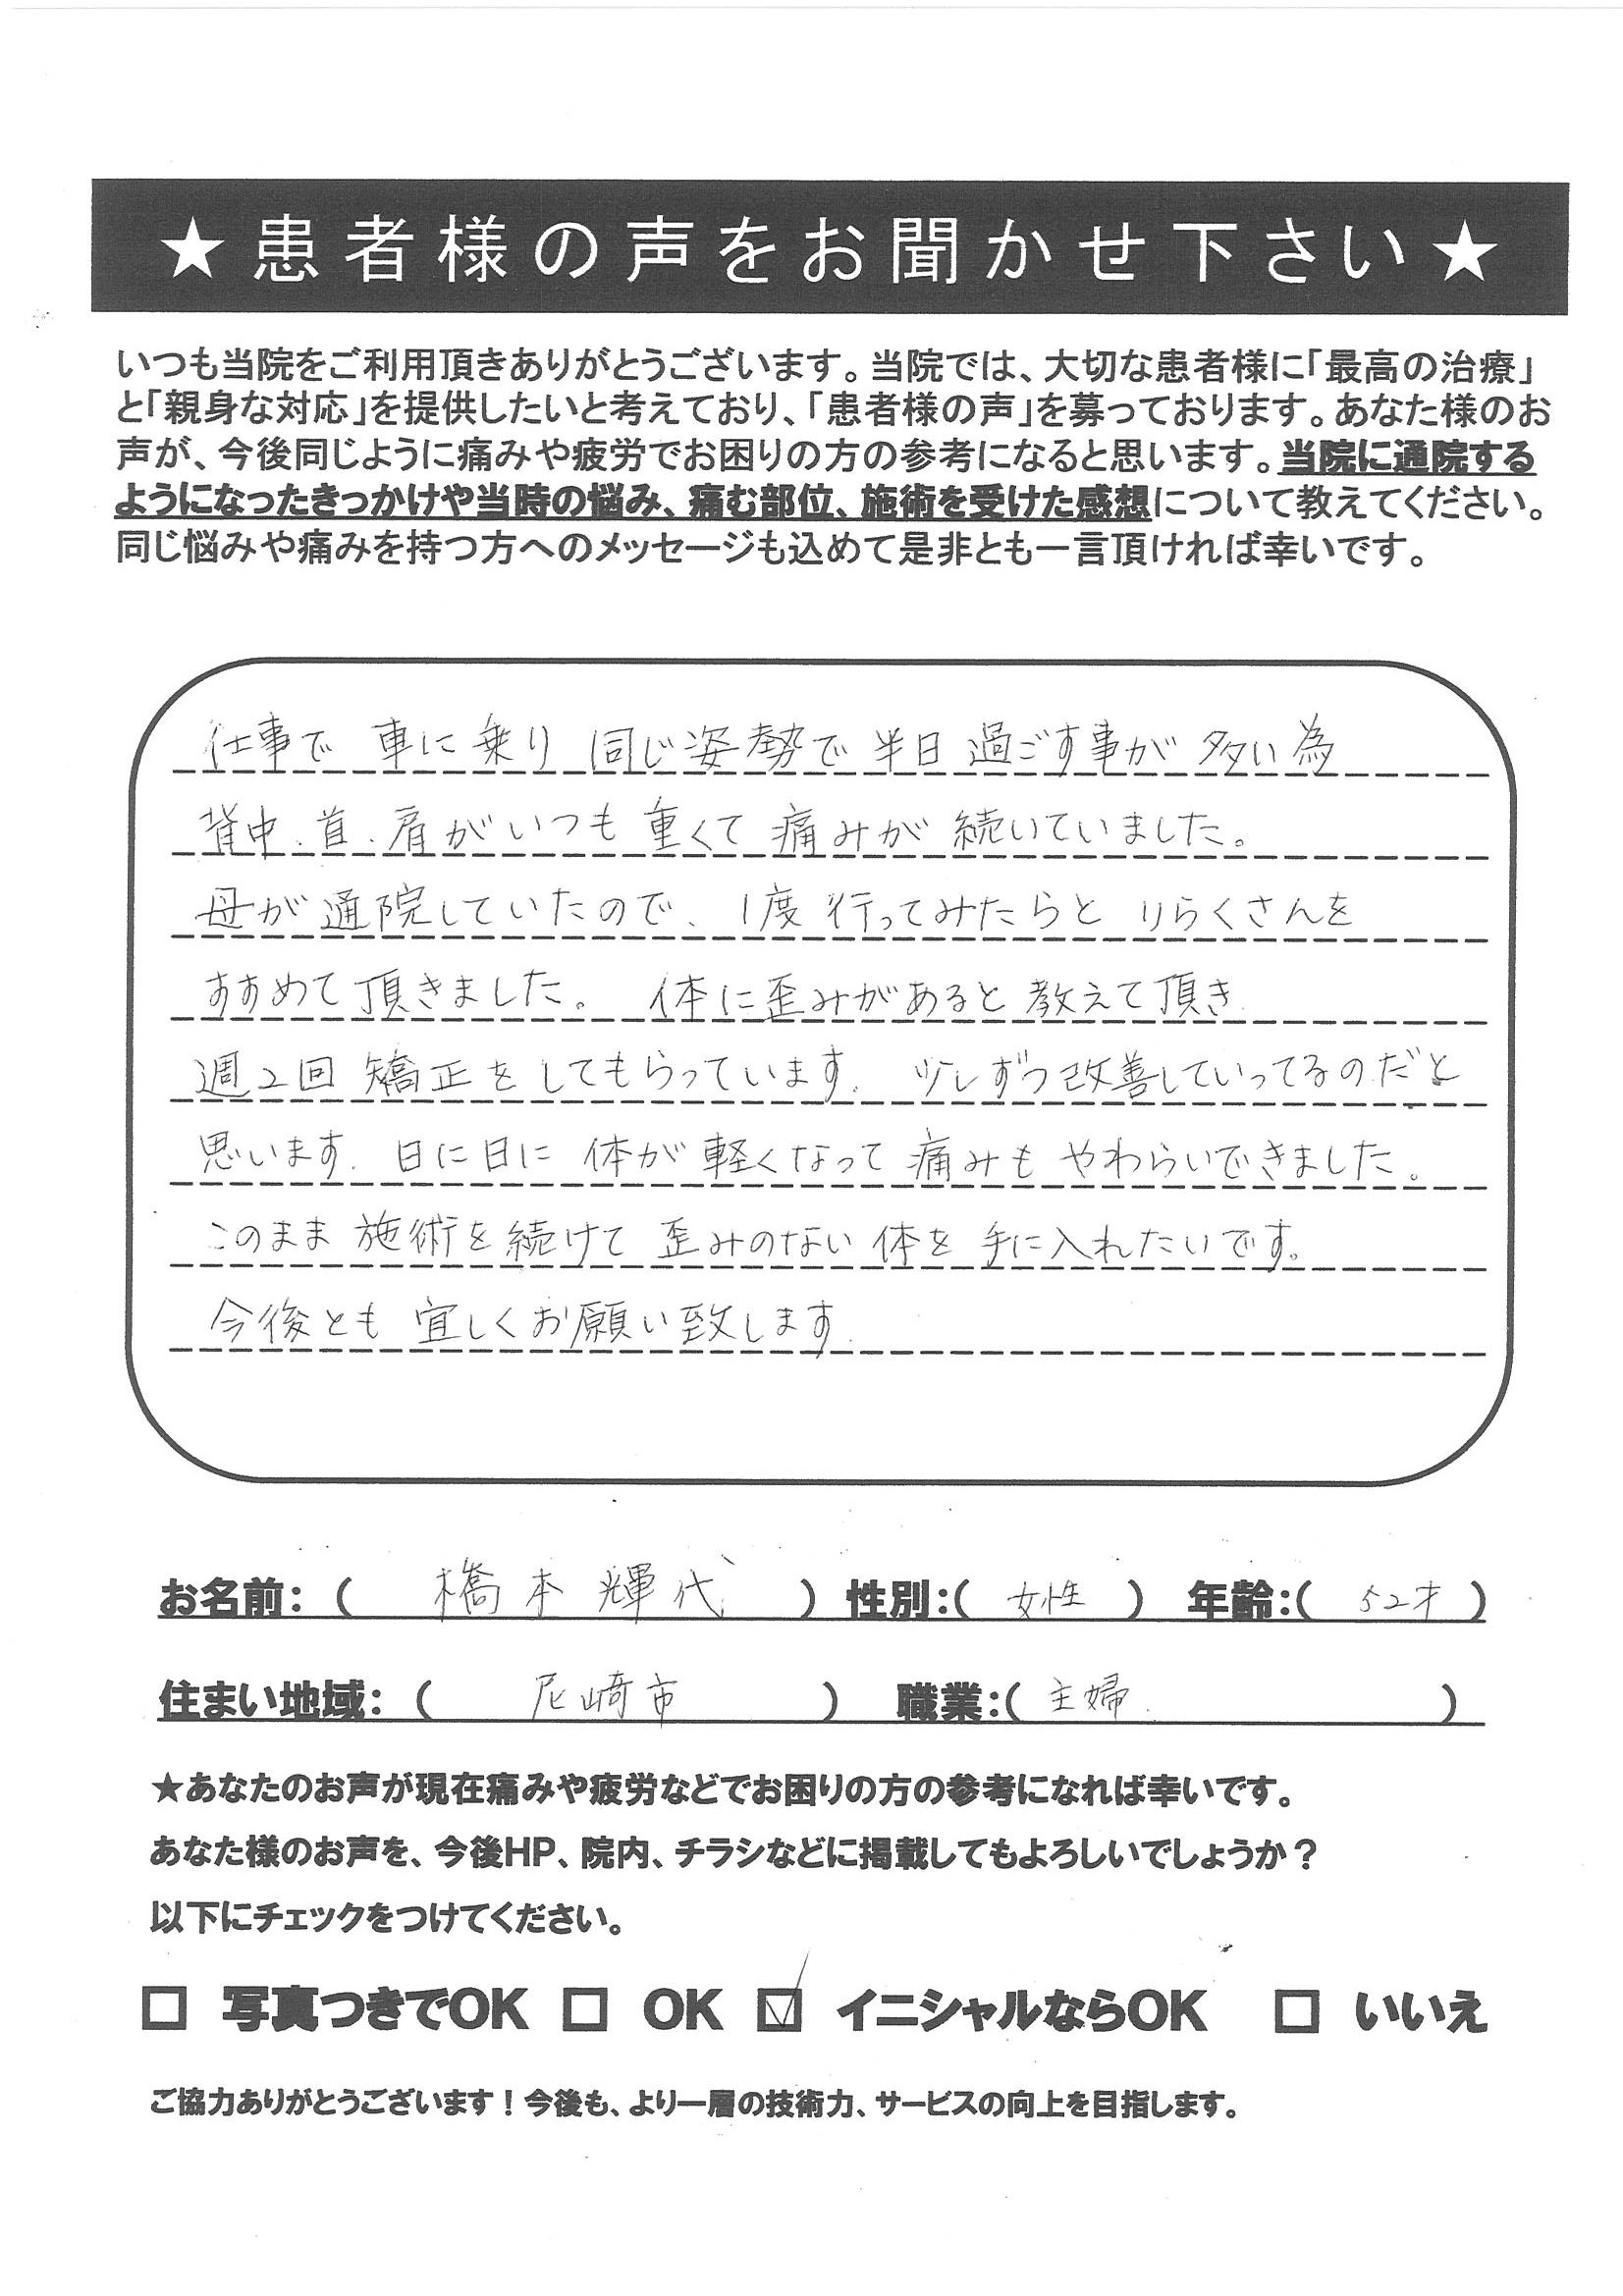 ★患者様の声をお聞かせ下さい★
いつも当院をご利用頂きありがとうございます。当院では、大切な患者様に「最高の治療」
と「親身な対応」を提供したいと考えており、「患者様の声」を募っております。あなた様のお
声が、今後同じように痛みや疲労でお困りの方の参考になると思います。当院に通院する
ようになったきっかけや当時の悩み、痛む部位、施術を受けた感想について教えてください。
同じ悩みや痛みを持つ方へのメッセージも込めて是非とも一言頂ければ幸いです。
仕事で 車に乗り 同じ姿勢で 半日 過ごす事が 多い為
背中、首、肩がいつも 重くて 痛みが 続いていました。
母が 通院していたので、1度 行ってみたらと りらくさんを
すすめて頂きました。 体に歪みがあると教えて頂き
週2回 矯正をしてもらっています。 少しずつ改善していってるのだと
思います。日に日に 体が 軽くなって 痛みも やわらいできました。
このまま 施術を続けて 歪みのない 体を 手に入れたいです。
今後とも 宜しくお願い致します
お名前:( 橋本 輝代 ) 性別:( 女性 ) 年齢:( 52才 )
住まい地域:( 尼崎市 ) 職業:( 主婦. )
★あなたのお声が現在痛みや疲労などでお困りの方の参考になれば幸いです。
あなた様のお声を、今後HP、院内、チラシなどに掲載してもよろしいでしょうか？
以下にチェックをつけてください。
□ 写真つきでOK □ OK ☑ イニシャルならOK □ いいえ
ご協力ありがとうございます！今後も、より一層の技術力、サービスの向上を目指します。